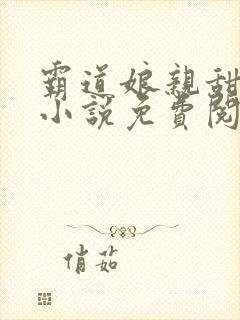 霸道娘親甜
小說免費閱
俏茹